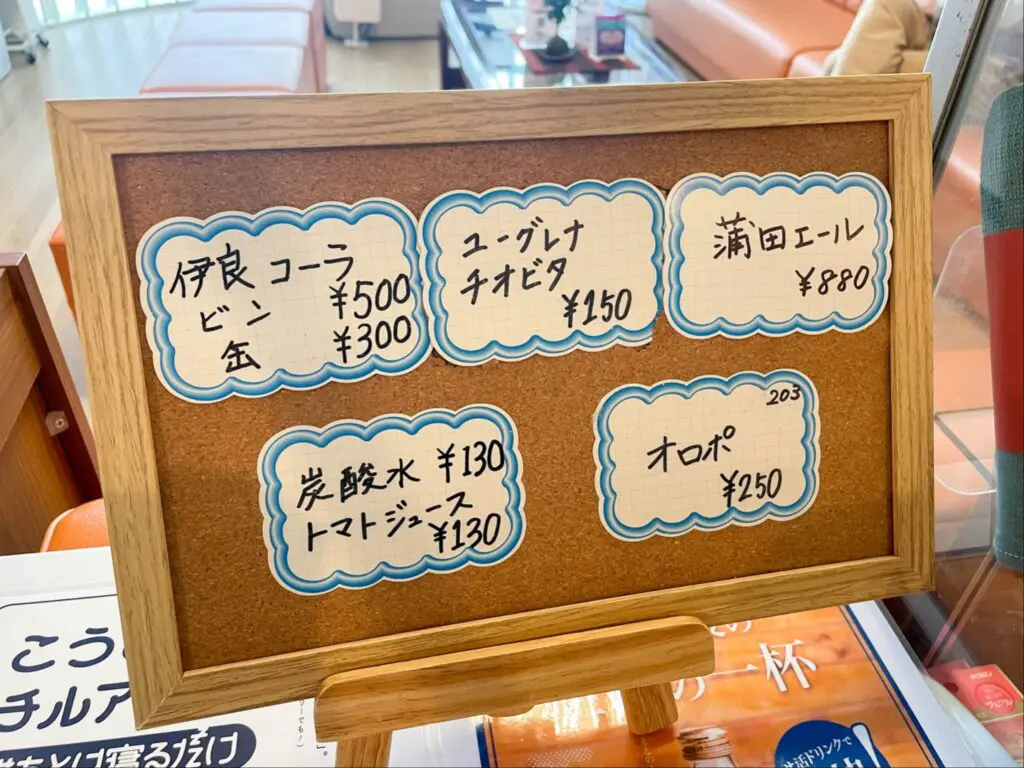 伊良コーラ
ビン ¥500
缶 ¥300
ユーグレナ
チオビタ
¥150
蒲田エール
¥880
炭酸水 ¥130
トマトジュース
¥130
203
オロポ
¥250
こう
チルア
の一杯